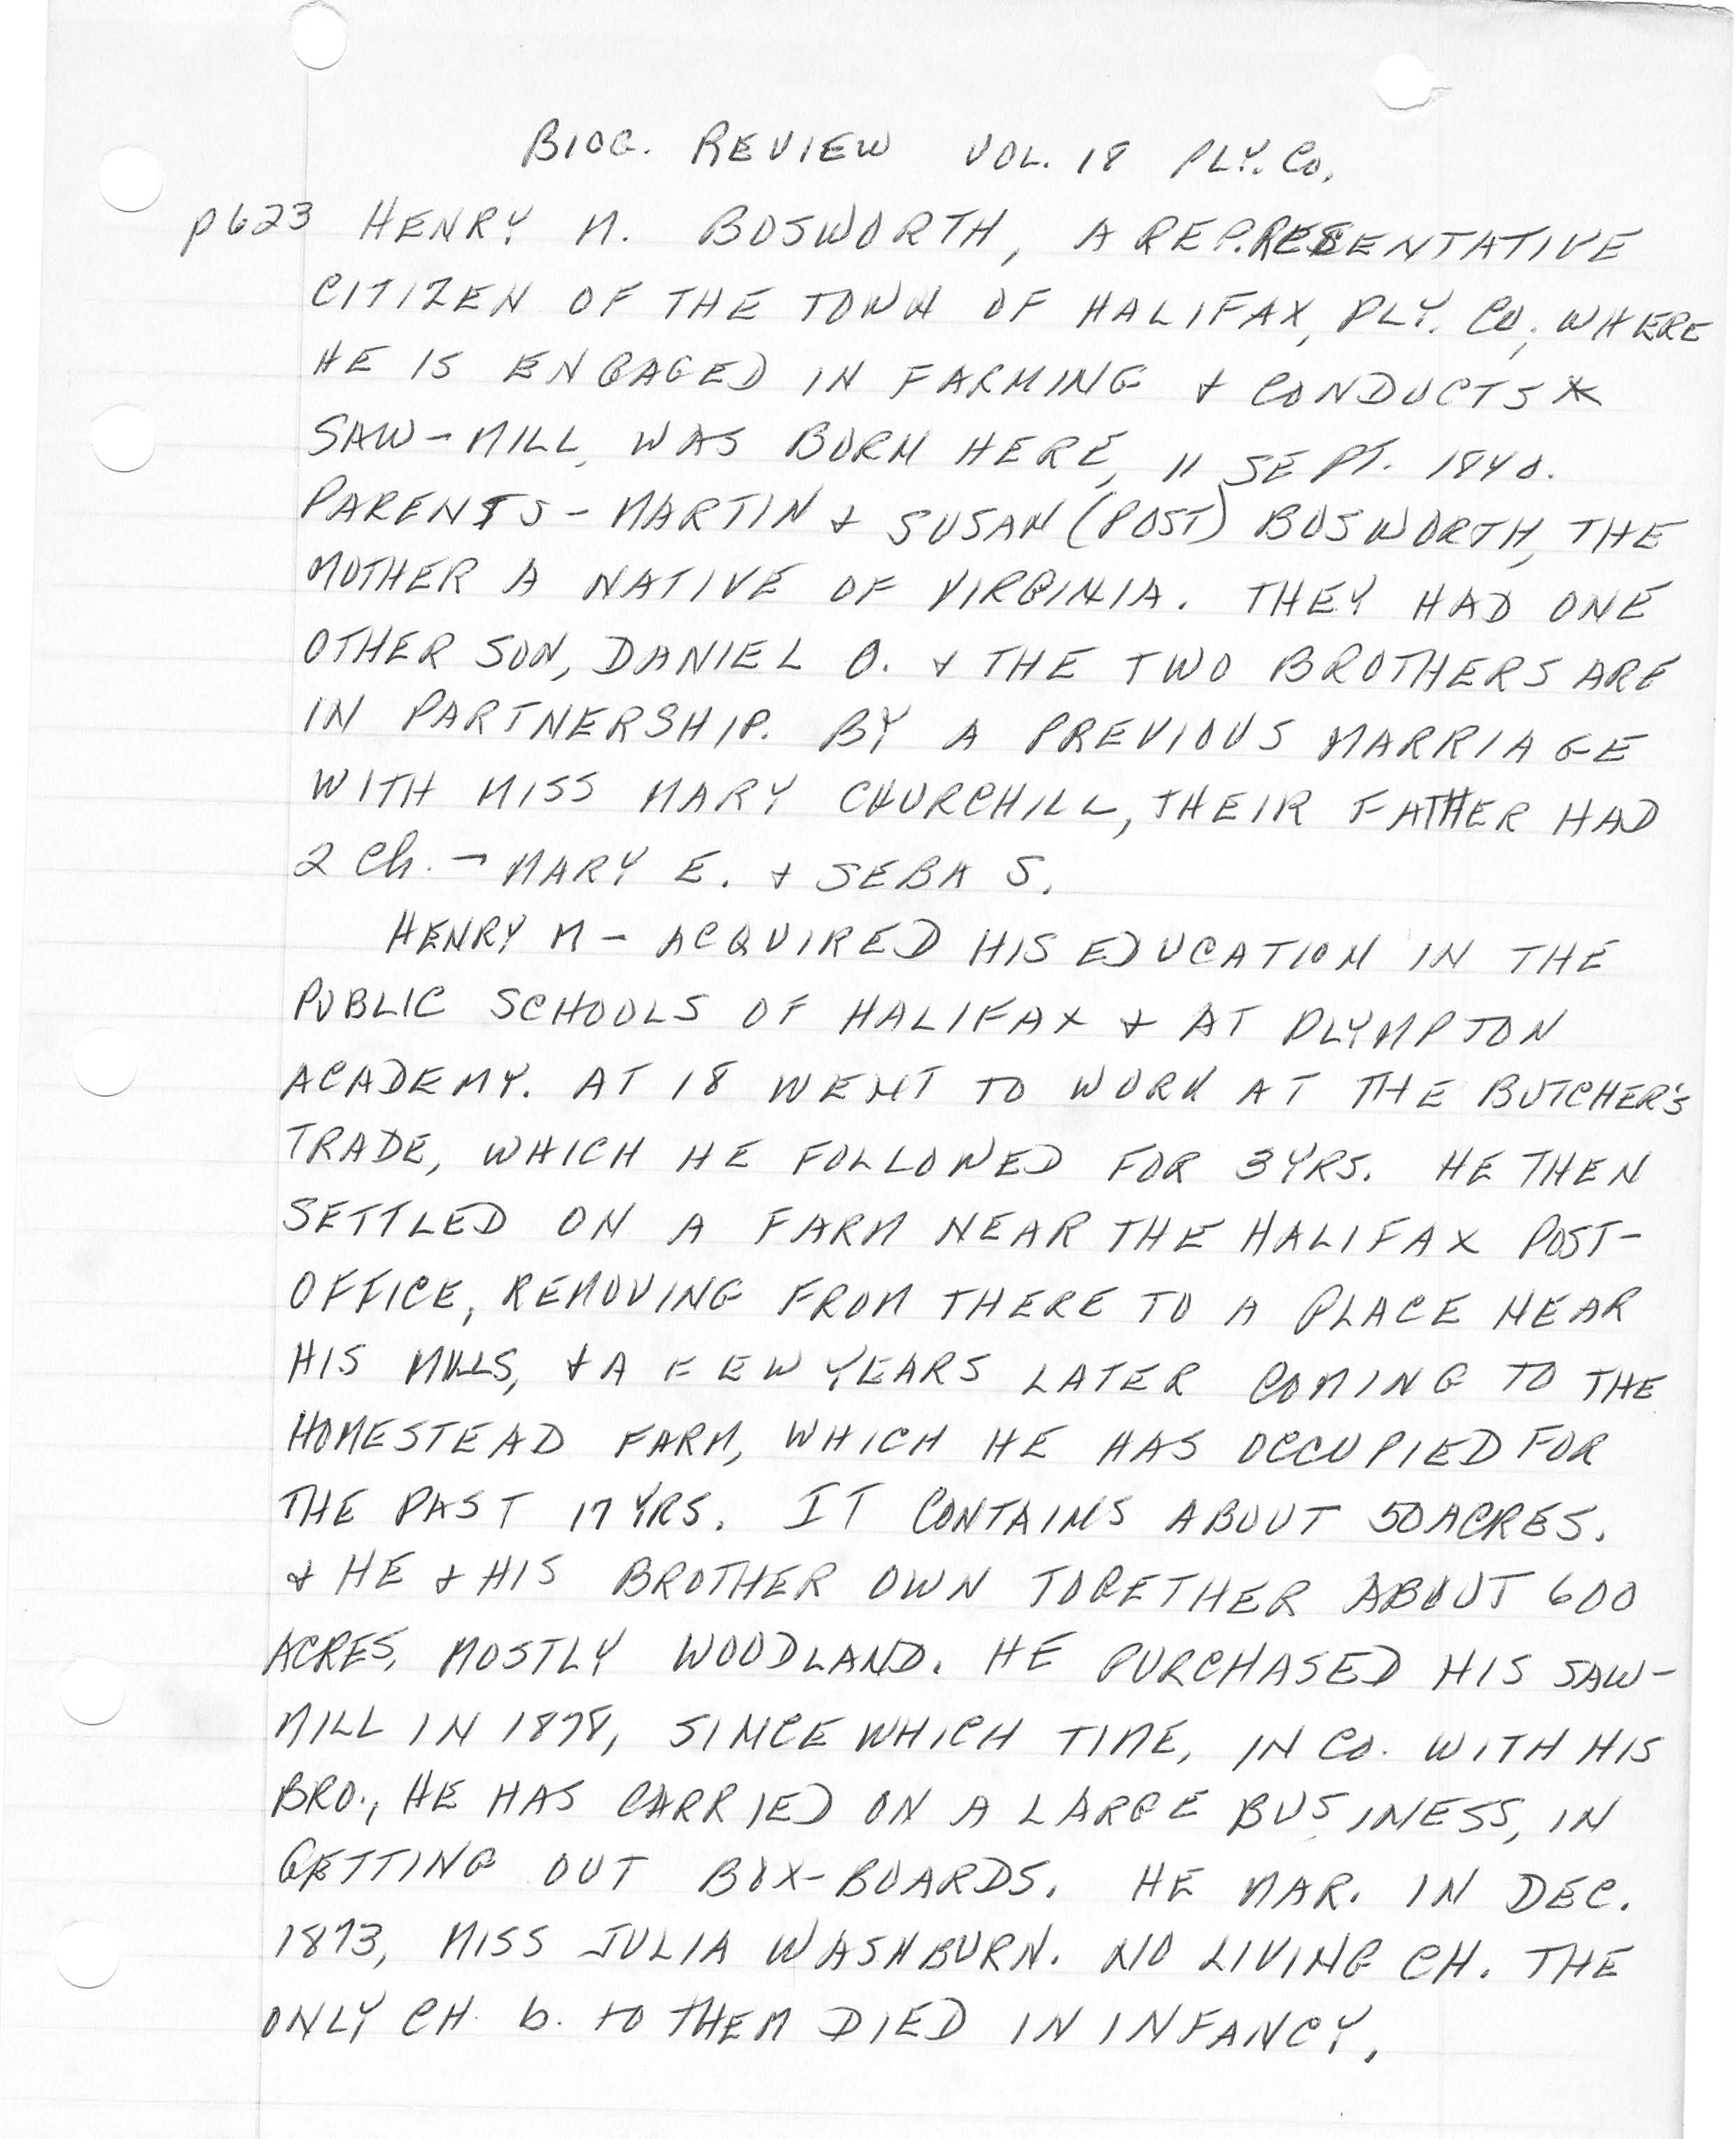 BIOG. REVIEW VOL. 18 PLY. CO.
p623 HENRY M. BOSWORTH, A REPRESENTATIVE
CITIZEN OF THE TOWN OF HALIFAX, PLY. CO, WHERE
HE IS ENGAGED IN FARMING & CONDUCTS A
SAW-MILL, WAS BORN HERE, 11 SEPT. 1840.
PARENTS - MARTIN & SUSAN (POST) BOSWORTH, THE
MOTHER A NATIVE OF VIRGINIA. THEY HAD ONE
OTHER SON, DANIEL O. & THE TWO BROTHERS ARE
IN PARTNERSHIP. BY A PREVIOUS MARRIAGE
WITH MISS MARY CHURCHILL, THEIR FATHER HAD
2 Ch. - MARY E. & SEBA S.
HENRY M - ACQUIRED HIS EDUCATION IN THE
PUBLIC SCHOOLS OF HALIFAX & AT PLYMPTON
ACADEMY. AT 18 WENT TO WORK AT THE BUTCHER'S
TRADE, WHICH HE FOLLOWED FOR 3 YRS. HE THEN
SETTLED ON A FARM NEAR THE HALIFAX POST-
OFFICE, REMOVING FROM THERE TO A PLACE NEAR
HIS MILLS, & A FEW YEARS LATER COMING TO THE
HOMESTEAD FARM, WHICH HE HAS OCCUPIED FOR
THE PAST 17 YRS. IT CONTAINS ABOUT 50 ACRES.
& HE & HIS BROTHER OWN TOGETHER ABOUT 600
ACRES, MOSTLY WOODLAND. HE PURCHASED HIS SAW-
MILL IN 1878, SINCE WHICH TIME, IN CO. WITH HIS
BRO., HE HAS CARRIED ON A LARGE BUSINESS, IN
GETTING OUT BOX-BOARDS. HE MAR. IN DEC.
1873, MISS JULIA WASHBURN. NO LIVING CH. THE
ONLY CH. b. to THEM DIED IN INFANCY.